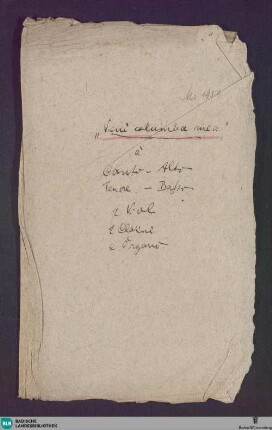 „Veni columba mea“
à
Canto – Alto
Tenore – Basso
2 Viol
2 Clarini
e Organo
BLB BADISCHE
LANDESBIBLIOTHEK
Baden-Württemberg